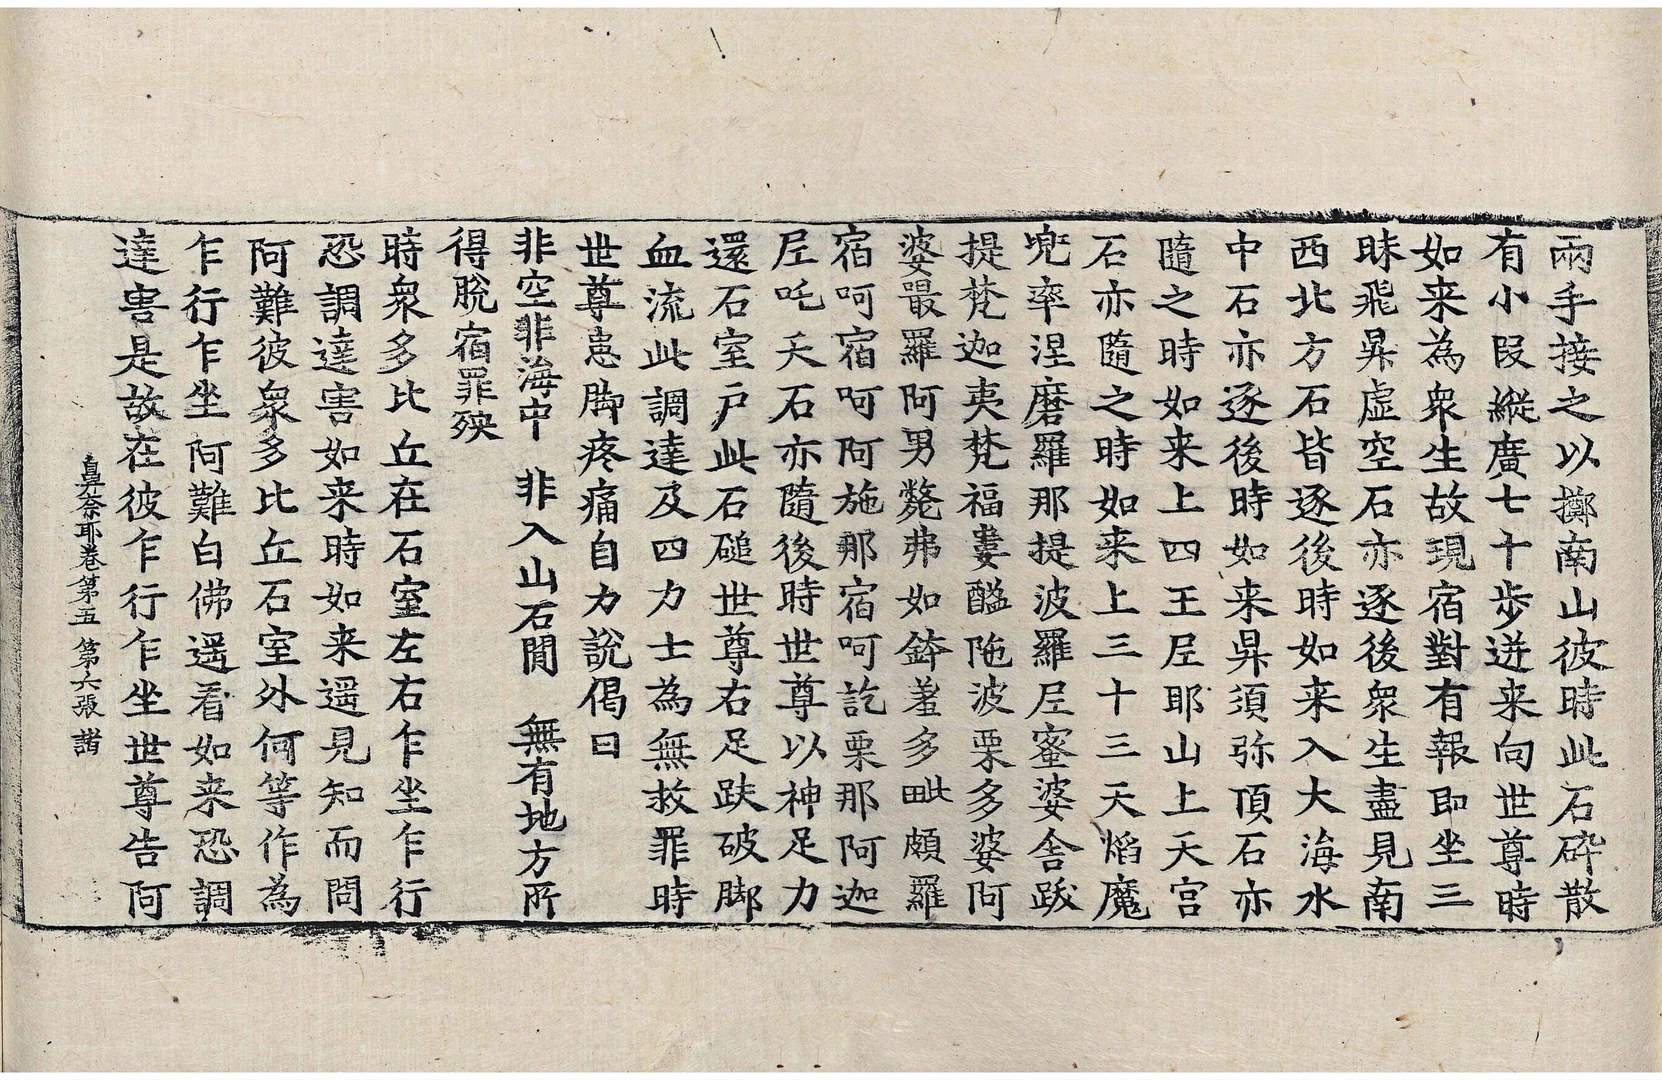 兩手接之以擲南山彼時此石碎散
有小段縱廣七十步迸来向世尊時
如来為衆生故現宿對有報即坐三
昧飛昇虚空石亦逐後衆生盡見南
西北方石皆逐後時如来入大海水
中石亦逐後時如来昇須弥頂石亦
隨之時如来上四王𡰱耶山上天宮
石亦隨之時如来上三十三天焰魔
兠率涅磨羅那提波羅𡰱蜜婆舎跋
提梵迦夷梵福婁醯陁波栗多婆阿
婆最羅阿男斃弗如鉢羞多毗頗羅
宿呵宿呵阿施那宿呵訖栗那阿迦
𡰱吒天石亦隨後時世尊以神足力
還石室户此石磓世尊右足趺破脚
血流此調達及四力士為無救罪時
世尊患脚疼痛自力說偈曰
非空非海中　非入山石間　無有地方所
得脫宿罪殃
時衆多比丘在石室左右乍坐乍行
恐調達害如来時如来遥見知而問
阿難彼衆多比丘石室外何等作為
乍行乍坐阿難白佛遥看如来恐調
達害是故在彼乍行乍坐世尊告阿
鼻奈耶卷第五　第六張　諸